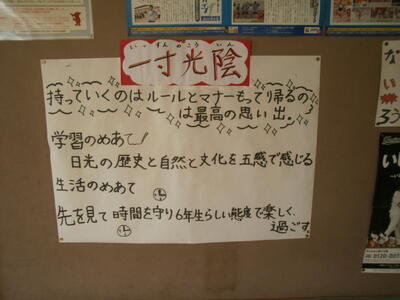 いっすんのこういん
一寸光陰
持っていくのはルールとマナーもって帰るの
は最高の思い出。
学習のめあて!
日光の歴史と自然と文化を五感で感じる
生活のめあて
先を見て時間を守り6年生らしい態度で楽しく、
過ごす。
ない